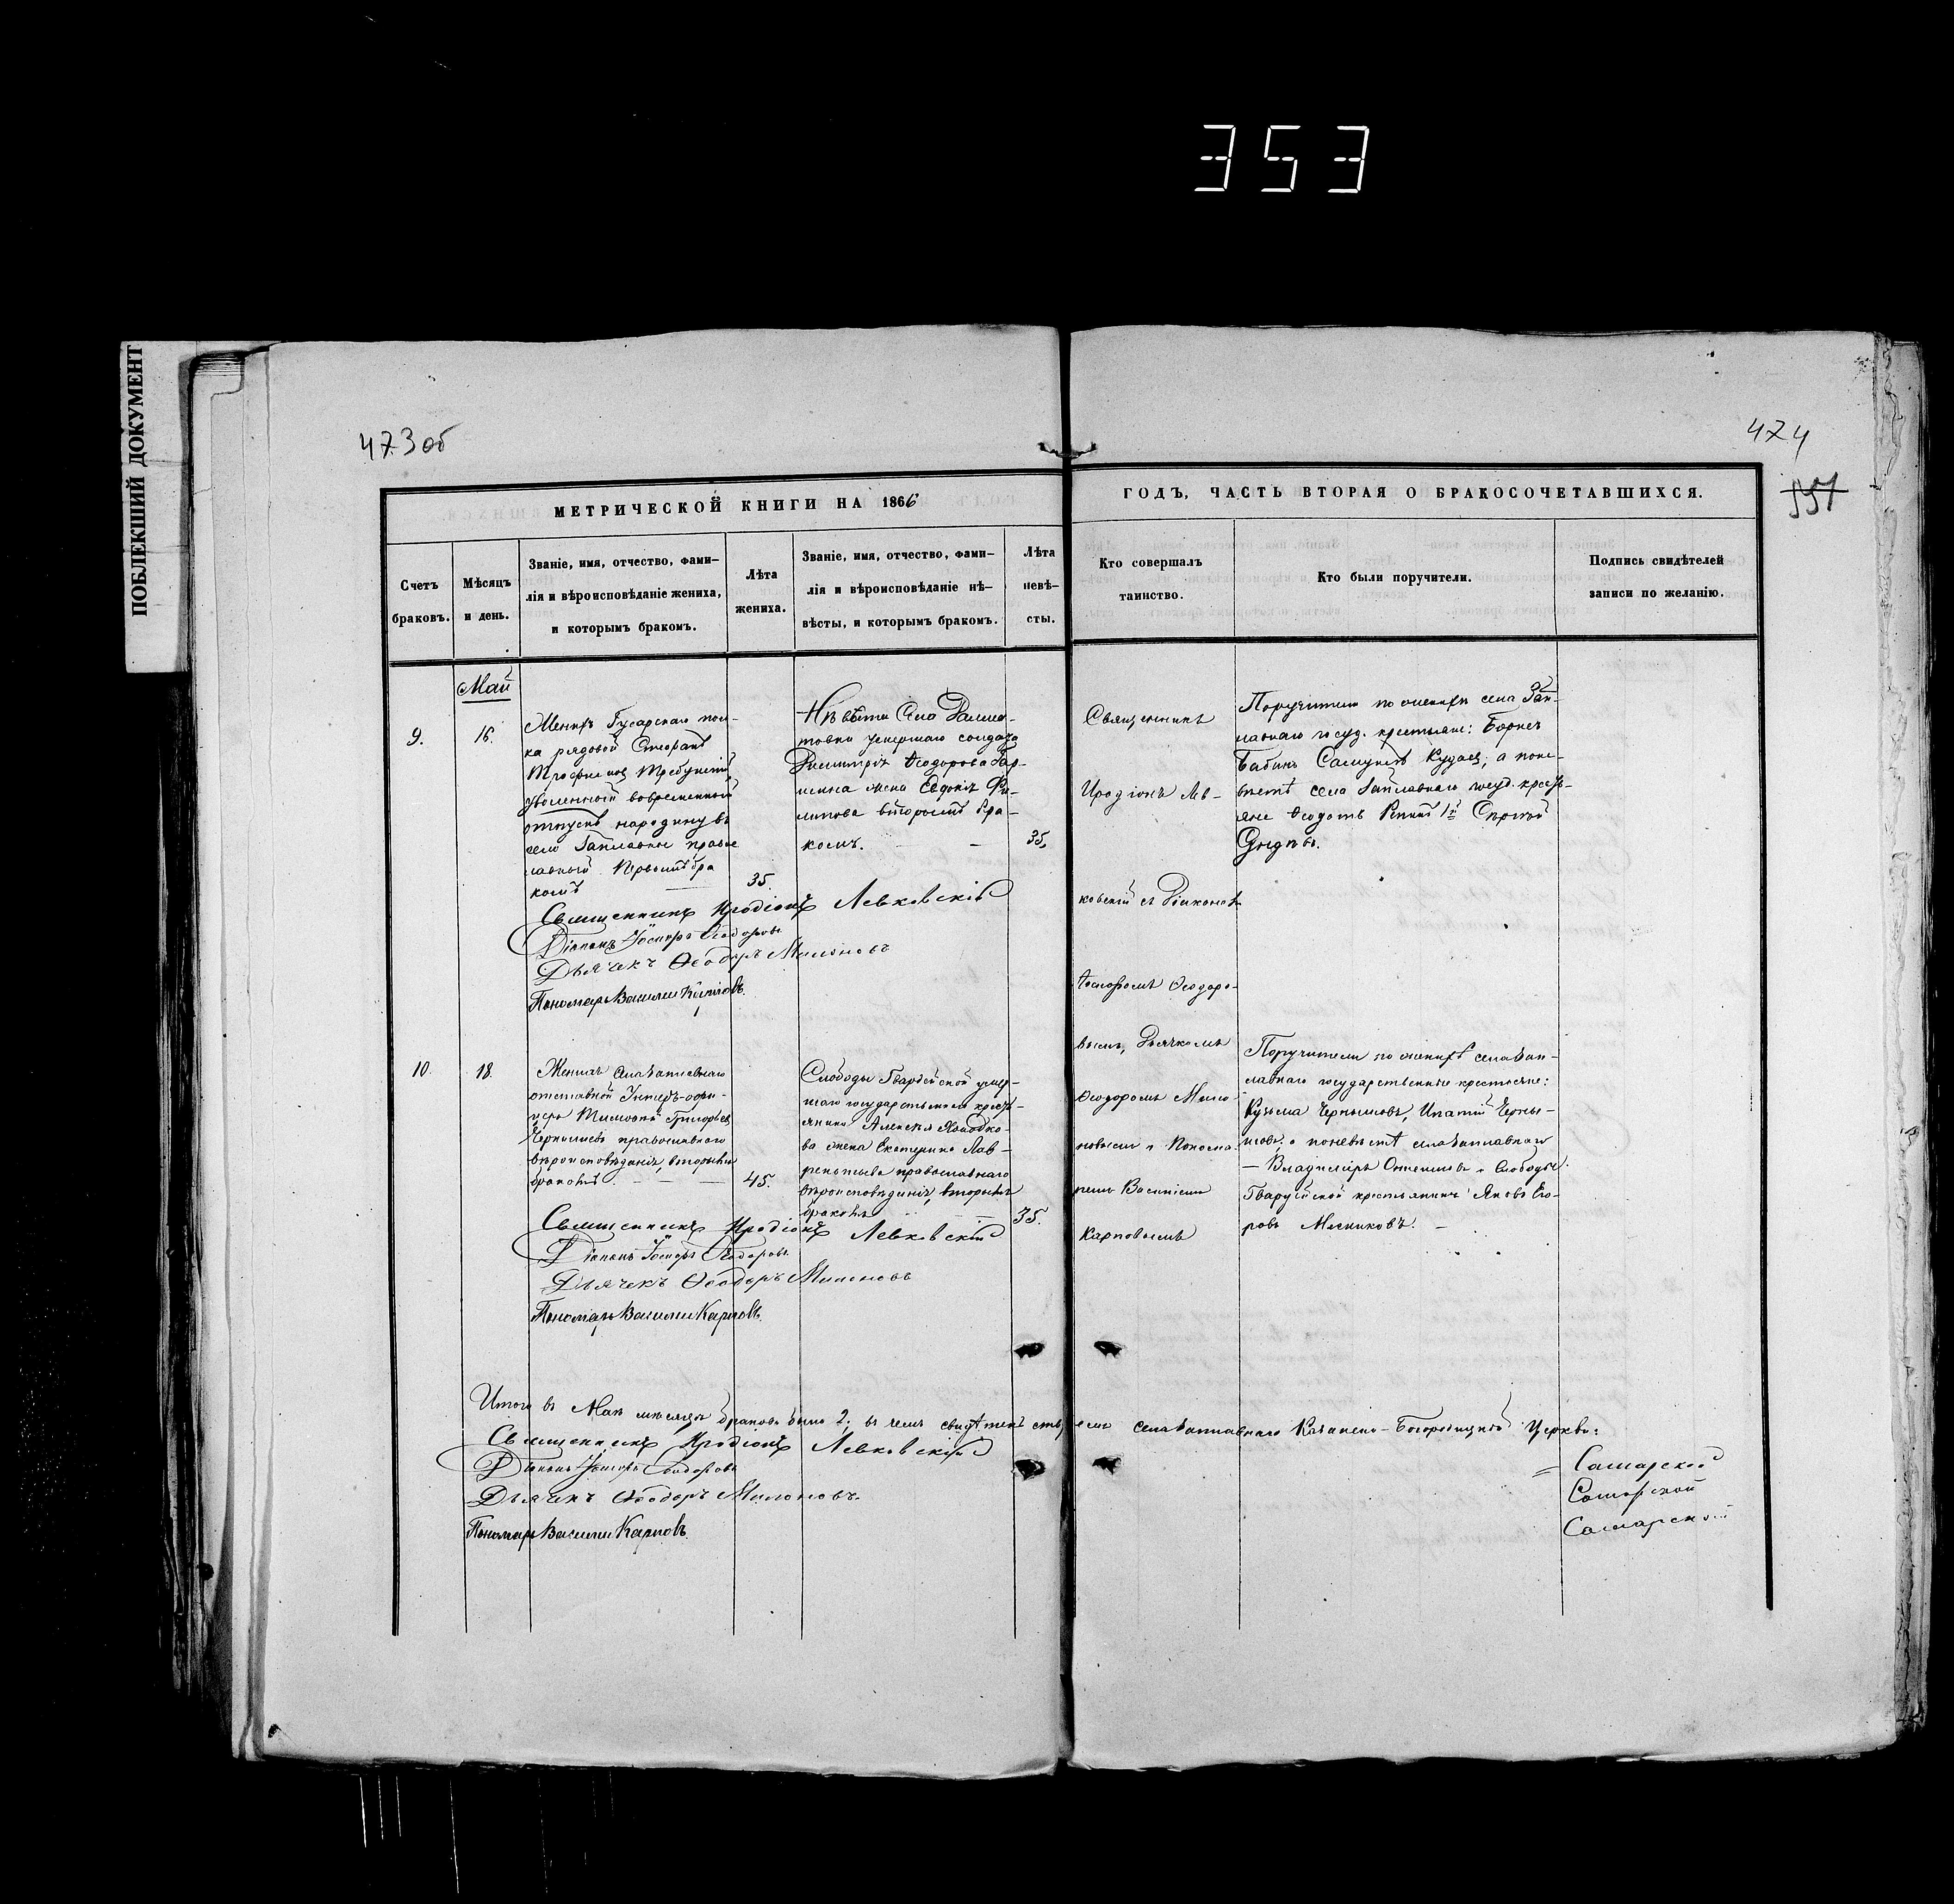 353
ПОБЛЕКШИЙ ДОКУМЕНТ
473об
474
МЕТРИЧЕСКОЙ КНИГИ НА 1866
ГОДЪ, ЧАСТЬ ВТОРАЯ О БРАКОСОЧЕТАВШИХСЯ.
Счетъ
браковъ.
Мѣсяцъ
и день.
Званіе, имя, отчество, фами-
лія и вѣроисповѣданіе жениха,
и которымъ бракомъ.
Лѣта
жениха.
Званіе, имя, отчество, фами-
лія и вѣроисповѣданіе нѣ-
вѣсты, и которымъ бракомъ.
Лѣта
невѣ-
сты.
Кто совершалъ
таинство.
Кто были поручители.
Подпись свидѣтелей
записи по желанію.
Май
9.
16.
Гусарскаго пол-
ка рядовой Стефанъ
уволенный вовременный
отпускъ народину въ
село Заплавное правос
лавный Первымъ бра
комъ
35.
Невѣста Села
товки умершаго солдата
Димитрія Ѳеодорова Гар-
жена Евдокія Фи-
липова вторымъ бра-
комъ.
35.
Священникъ
Иродіонъ Лев-
ковскій съ Діакономъ
Ѳеодоро-
вымъ, Дьячкомъ
Ѳеодоромъ Мило-
новымъ и Понома-
ремъ Василіемъ
Карповымъ
Поручители по женихѣ села Зап-
лавнаго госуд. крестьяне:
Бабинъ Кудаев, а поне-
вѣстѣ села Заплавнаго госуд. кресть-
яне Ѳеодотъ
Священникъ Иродіонъ Левковскій
Діаконъ Ѳеодоровъ
Дьячекъ Ѳеодоръ Милоновъ
Пономарь Василии Карповъ.
10.
18.
Женихъ села Заплавнаго
отставной Унтеръ-офи-
церъ Тимофей Григорьев
Чернышевъ православнаго
вѣроисповѣданія, вторымъ
бракомъ
45.
Слободы Гвардейской умер-
шаго государственнаго кресть-
янина Алексѣя Холодко-
ва жена Екатерина Лав-
рентьева православнаго
вѣроисповѣданія, вторымъ
бракомъ
35.
Поручители по женихѣ села Зап-
лавнаго государственные крестьяне:
Кузьма Чернышовъ, Ипатій Черны-
шовъ; а поневѣстѣ села Заплавнаго
Владимиръ и Слободы
Гвардейской крестьянинъ Яковъ Его-
ровъ Мясниковъ.
Священникъ Иродіонъ Левковскій
Діаконъ Ѳеодоровъ
Дьячекъ Ѳеодоръ Милоновъ
Пономарь Василии Карповъ.
Итого въ Маѣ мѣсяцѣ браковъ было 2; въ чемъ свидѣтельствуемъ села Заплавнаго Казанско-Богородицкой Церкви:
Священникъ Иродіонъ Левковскій
Діаконъ Ѳеодоровъ
Дьячекъ Ѳеодоръ Милоновъ.
Пономарь Василии Карповъ.
Самарской
Самарской
Самарской